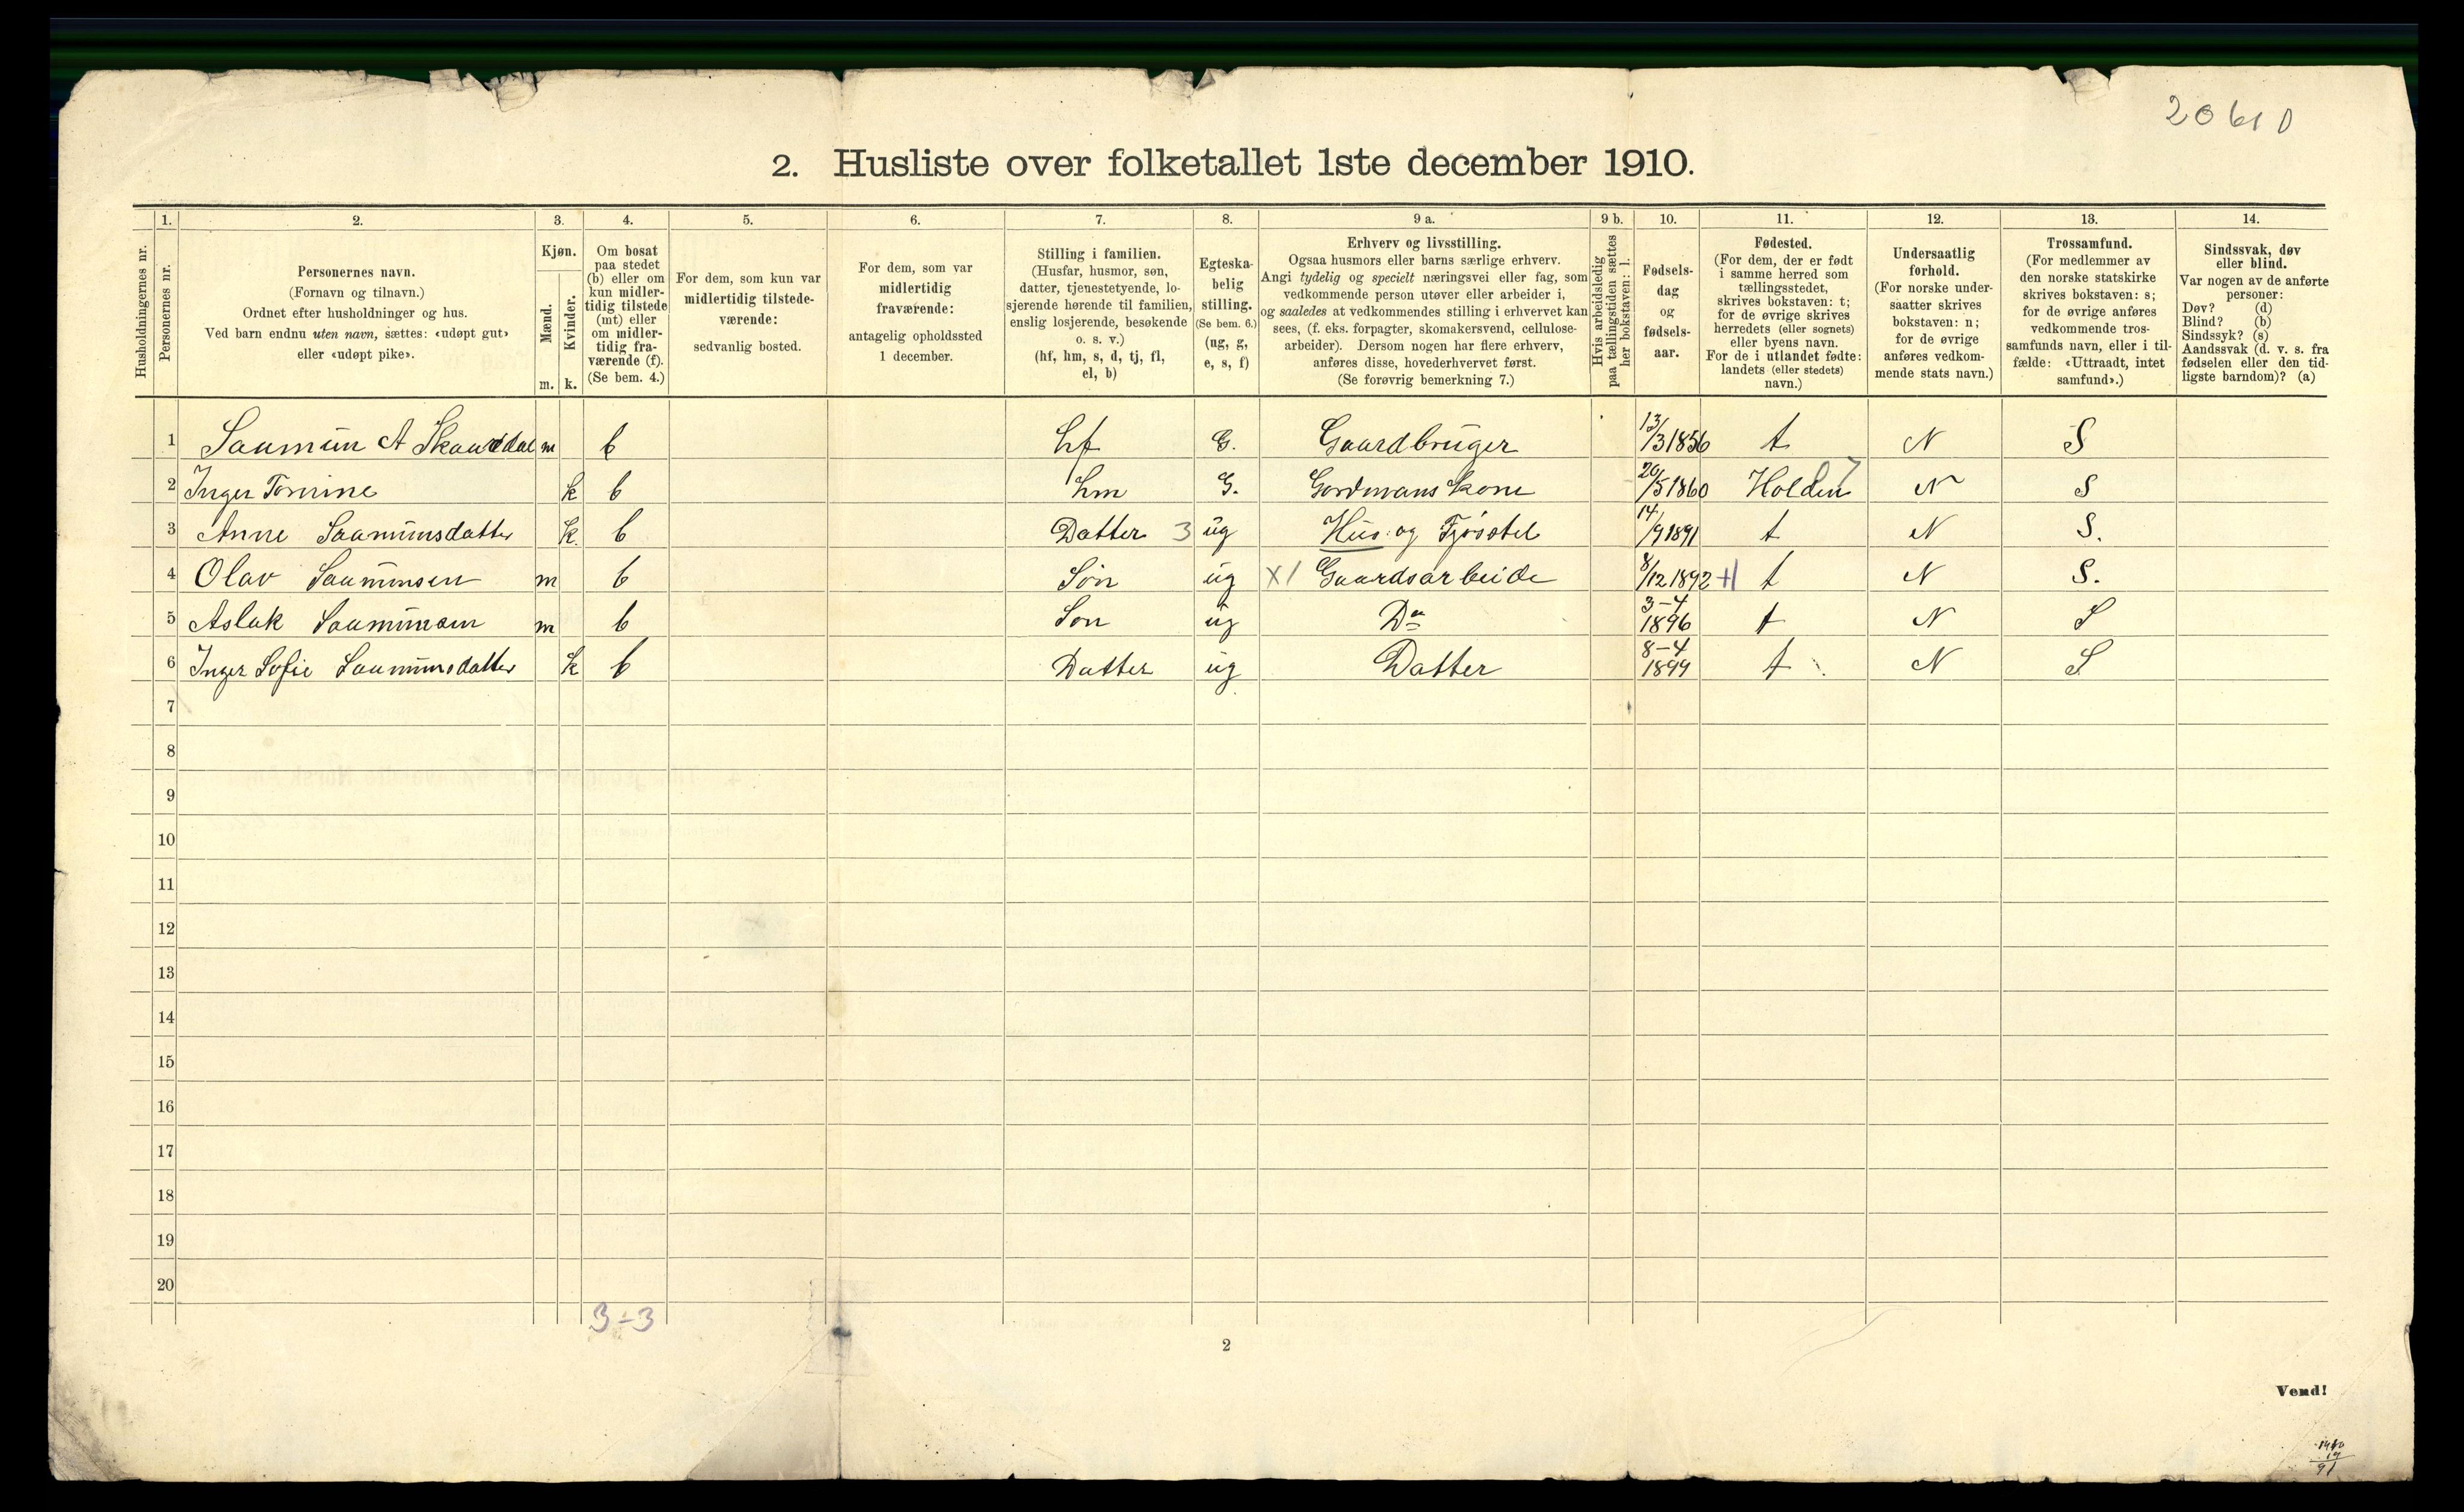 20610
2. Husliste over folketallet 1ste december 1910.
1. 2. 3. 4. 5. 6. 7. 8. 9 a. 9 b. 10. 11. 12. 13. 14.
Husholdningernes nr.
Personernes nr.
Personernes navn.
(Fornavn og tilnavn.)
Ordnet efter husholdninger og hus.
Ved barn endnu uten navn, sættes: «udøpt gut»
eller «udøpt pike».
Kjøn.
Mænd.
Kvinder.
m. k.
Om bosat
paa stedet
(b) eller om
kun midler-
tidig tilstede
(mt) eller
om midler-
tidig fra-
værende (f).
(Se bem. 4.)
For dem, som kun var
midlertidig tilstede-
værende:
sedvanlig bosted.
For dem, som var
midlertidig
fraværende:
antagelig opholdssted
1 december.
Stilling i familien.
(Husfar, husmor, søn,
datter, tjenestetyende, lo-
sjerende hørende til familien,
enslig losjerende, besøkende
o. s. v.)
(hf, hm, s, d, tj, fl,
el, b)
Egteska-
belig
stilling.
(Se bem. 6.)
(ug, g,
e, s, f)
Erhverv og livsstilling.
Ogsaa husmors eller barns særlige erhverv.
Angi tydelig og specielt næringsvei eller fag, som
vedkommende person utøver eller arbeider i,
og saaledes at vedkommendes stilling i erhvervet kan
sees, (f. eks. forpagter, skomakersvend, cellulose-
arbeider). Dersom nogen har flere erhverv,
anføres disse, hovederhvervet først.
(Se forøvrig bemerkning 7.)
Hvis arbeidsledig
paa tællingstiden sættes
her bokstaven: l.
Fødsels-
dag
og
fødsels-
aar.
Fødested.
(For dem, der er født
i samme herred som
tællingsstedet,
skrives bokstaven: t;
for de øvrige skrives
herredets (eller sognets)
eller byens navn.
For de i utlandet fødte:
landets (eller stedets)
navn.)
Undersaatlig
forhold.
(For norske under-
saatter skrives
bokstaven: n;
for de øvrige
anføres vedkom-
mende stats navn.)
Trossamfund.
(For medlemmer av
den norske statskirke
skrives bokstaven: s;
for de øvrige anføres
vedkommende tros-
samfunds navn, eller i til-
fælde: «Uttraadt, intet
samfund».)
Sindssvak, døv
eller blind.
Var nogen av de anførte
personer:
Døv? (d)
Blind? (b)
Sindssyk? (s)
Aandssvak (d. v. s. fra
fødselen eller den tid-
ligste barndom)? (a)
1 Saamun A Skaardal m b hf G. Gaardbruger 13/3 1856 t N S
2 Inger Tomine k b hm G. Gordmans kone 20/5 1860 Holden 7 N S
3 Anne Saamunsdatter k. b Datter 3 ug Hus: og Fjøsstel 14/9 1891 t N S.
4 Olav Saamunsen m b Søn ug X1 Gaardsarbeide 8/12 1892 +1 t N S.
5 Aslak Saamunsen m b Son ug Do 3-4 1896 t N S
6 Inger Sofie Saamunsdatter k b Datter ug Datter 8-4 1899 t N S
7
8
9
10
11
12
13
14
15
16
17
18
19
20
3-3
2
Vend!